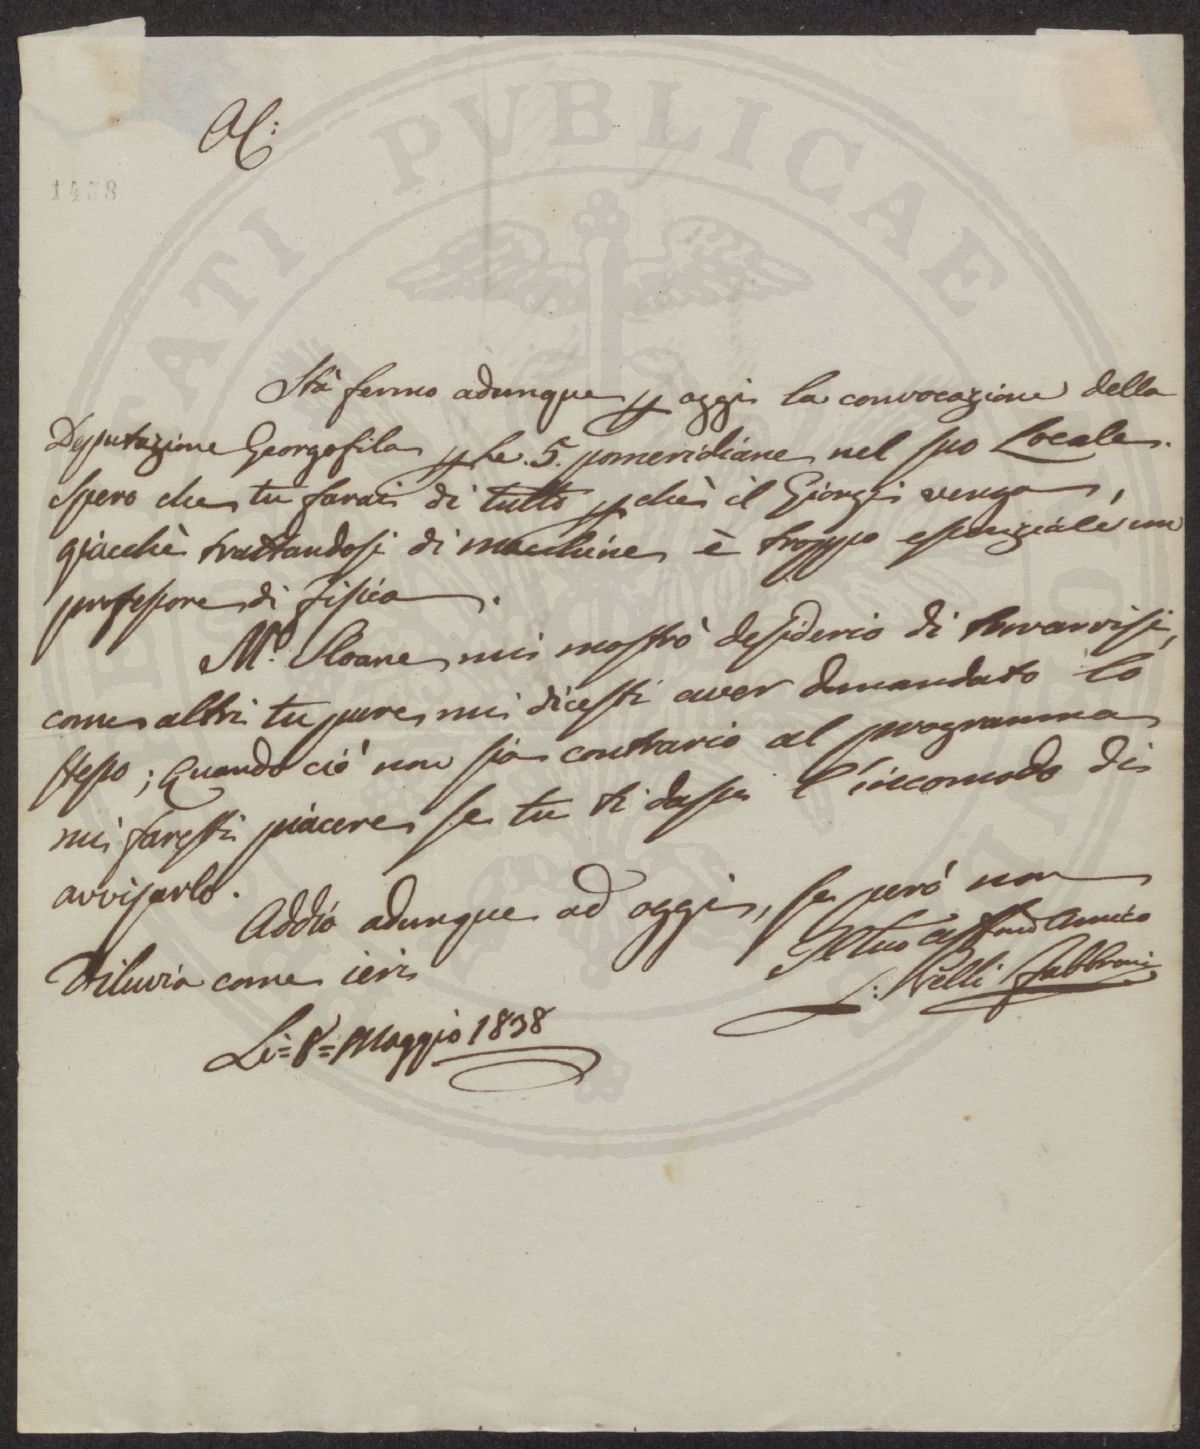 AC:
1438
PUBLICAE
Stà fermo adunque p oggi la convocazione della
Deputazione Georgofila p le. 5. pomeridiane nel suo Locale.
Spero che tu farai di tutto pchè il Giorgi venga,
giacchè trattandosi di macchine è troppo essenziale un
professore di fisica.
Mr. Sloane mi mostrò desiderio di trovarvisi,
come altri tu pure mi dicesti aver dimandato lo
stesso; Quando ciò non sia contrario al programma
mi faresti piacere se tu ti dassi l'incomodo di
avvisarlo.
Addio adunque ad oggi, se però non
diluvia come ieri
Il tuo aff.mo Amico
L: Nelli Fabbroni
Li = 8 = Maggio 1838